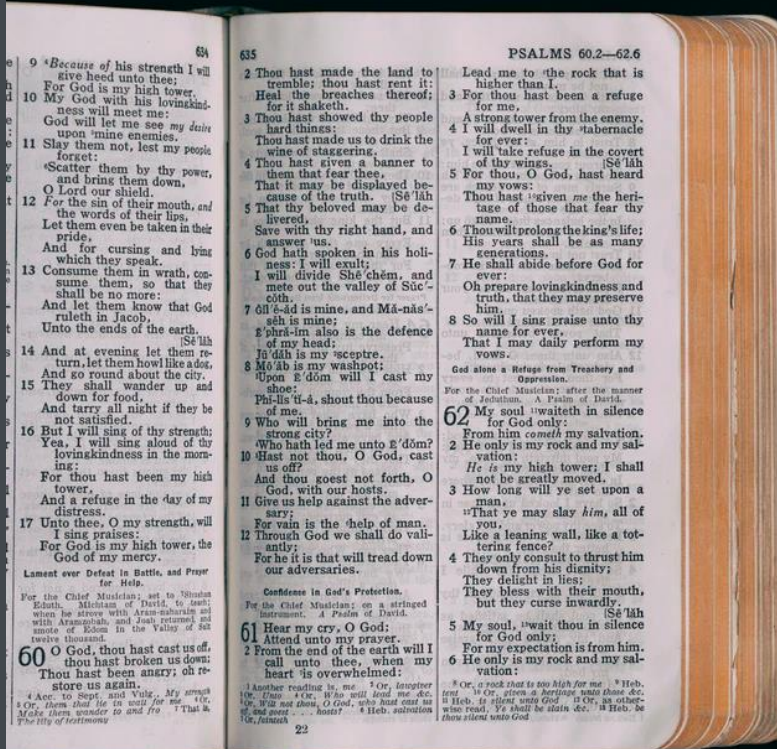 634
9 ⁴Because of his strength I will
give heed unto thee;
For God is my high tower.
10 My God with his lovingkind-
ness will meet me:
God will let me see my desire
upon ⁵mine enemies.
11 Slay them not, lest my people
forget:
⁶Scatter them by thy power,
and bring them down,
O Lord our shield.
12 For the sin of their mouth, and
the words of their lips,
Let them even be taken in their
pride,
And for cursing and lying
which they speak.
13 Consume them in wrath, con-
sume them, so that they
shall be no more:
And let them know that God
ruleth in Jacob,
Unto the ends of the earth.
[Sē´lăh
14 And at evening let them re-
turn, let them howl like a dog,
And go round about the city.
15 They shall wander up and
down for food,
And tarry all night if they be
not satisfied.
16 But I will sing of thy strength;
Yea, I will sing aloud of thy
lovingkindness in the morn-
ing:
For thou hast been my high
tower,
And a refuge in the day of my
distress.
17 Unto thee, O my strength, will
I sing praises:
For God is my high tower, the
God of my mercy.
Lament over Defeat in Battle, and Prayer
for Help.
For the Chief Musician; set to ⁷Shushan
Eduth. Michtam of David, to teach;
when he strove with Aram-naharaim and
with Aramzobah, and Joab returned, and
smote of Edom in the Valley of Salt
twelve thousand.
60 O God, thou hast cast us off,
thou hast broken us down;
Thou hast been angry; oh re-
store us again.
⁴ Acc. to Sept. and Vulg., My strength
⁵ Or, them that lie in wait for me ⁶ Or,
Make them wander to and fro ⁷ That is,
The lily of testimony
635
2 Thou hast made the land to
tremble; thou hast rent it:
Heal the breaches thereof;
for it shaketh.
3 Thou hast showed thy people
hard things:
Thou hast made us to drink the
wine of staggering.
4 Thou hast given a banner to
them that fear thee,
That it may be displayed be-
cause of the truth. [Sē´lăh
5 That thy beloved may be de-
livered,
Save with thy right hand, and
answer ¹us.
6 God hath spoken in his holi-
ness: I will exult;
I will divide Shē´chĕm, and
mete out the valley of Sŭc´-
cŏth.
7 Gĭl´ē-ăd is mine, and Mă-năs´-
sĕh is mine;
Ē´phră-ĭm also is the defence
of my head;
Jū´dăh is my ²sceptre.
8 Mō´ăb is my washpot;
³Upon Ē´dŏm will I cast my
shoe:
Phĭ-lĭs´tĭ-ă, shout thou because
of me.
9 Who will bring me into the
strong city?
⁴Who hath led me unto Ē´dŏm?
10 ⁵Hast not thou, O God, cast
us off?
And thou goest not forth, O
God, with our hosts.
11 Give us help against the adver-
sary;
For vain is the ⁶help of man.
12 Through God we shall do vali-
antly;
For he it is that will tread down
our adversaries.
Confidence in God's Protection.
For the Chief Musician; on a stringed
instrument. A Psalm of David.
61 Hear my cry, O God;
Attend unto my prayer.
2 From the end of the earth will I
call unto thee, when my
heart ⁷is overwhelmed:
¹ Another reading is, me ² Or, lawgiver
³ Or, Unto ⁴ Or, Who will lead me &c.
⁵ Or, Wilt not thou, O God, who hast cast us
off, and goest . . . hosts? ⁶ Heb. salvation
⁷ Or, fainteth
22
PSALMS 60.2—62.6
Lead me to ⁸the rock that is
higher than I.
3 For thou hast been a refuge
for me,
A strong tower from the enemy.
4 I will dwell in thy ⁹tabernacle
for ever:
I will take refuge in the covert
of thy wings. [Sē´lăh
5 For thou, O God, hast heard
my vows:
Thou hast ¹⁰given me the heri-
tage of those that fear thy
name.
6 Thou wilt prolong the king's life;
His years shall be as many
generations.
7 He shall abide before God for
ever:
Oh prepare lovingkindness and
truth, that they may preserve
him.
8 So will I sing praise unto thy
name for ever,
That I may daily perform my
vows.
God alone a Refuge from Treachery and
Oppression.
For the Chief Musician; after the manner
of Jeduthun. A Psalm of David.
62 My soul ¹¹waiteth in silence
for God only:
From him cometh my salvation.
2 He only is my rock and my sal-
vation:
He is my high tower; I shall
not be greatly moved.
3 How long will ye set upon a
man,
¹²That ye may slay him, all of
you,
Like a leaning wall, like a tot-
tering fence?
4 They only consult to thrust him
down from his dignity;
They delight in lies;
They bless with their mouth,
but they curse inwardly.
[Sē´lăh
5 My soul, ¹³wait thou in silence
for God only;
For my expectation is from him.
6 He only is my rock and my sal-
vation:
⁸ Or, a rock that is too high for me ⁹ Heb.
tent ¹⁰ Or, given a heritage unto those &c.
¹¹ Heb. is silent unto God ¹² Or, as other-
wise read, Ye shall be slain &c. ¹³ Heb. be
thou silent unto God